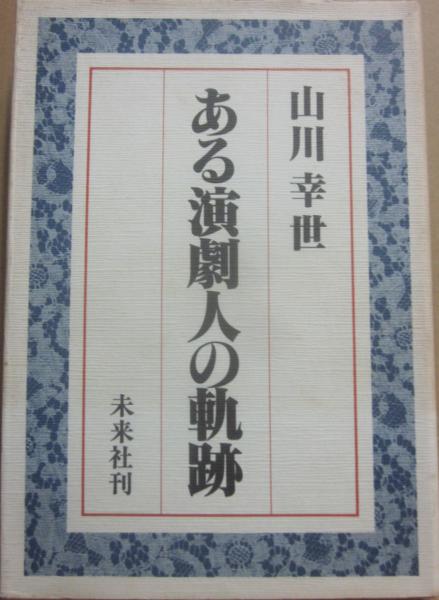 山川幸世
ある演劇人の軌跡
未来社刊